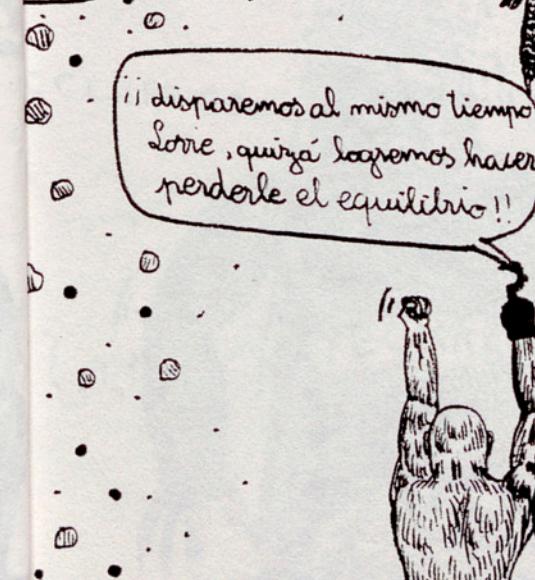 ¡¡disparemos al mismo tiempo
Lorre, quizá logremos hacer
perderle el equilibrio!!